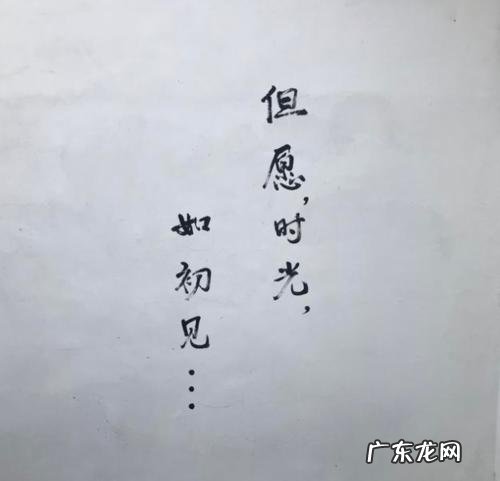 但愿,时光,
如初见…
广东龙网